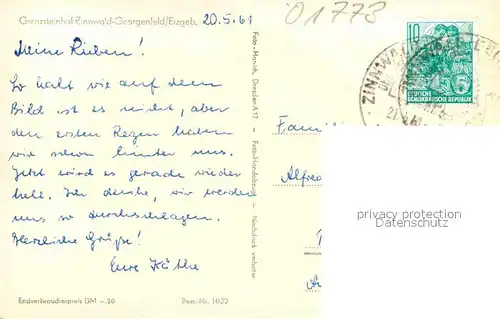 Grenzsteinhof Zinnwald-Georgenfeld/Erzgeb.
20.5.61
01773
Meine Lieben!
So kalt wie auf dem
Bild ist es nicht, aber
den ersten Regen haben
wir schon hinter uns.
Jetzt wird es gerade wieder
hell. Ich denke, wir werden
uns so durchschlagen.
Herzliche Grüße!
Eure Käthe
Endverbraucherpreis DM —.20
Best.-Nr. 1022
Foto-Hanich, Dresden A 17 — Foto-Handabzug — Nachdruck verboten
10
DEUTSCHE
DEMOKRATISCHE REPUBLIK
ZINNWALD
Familie
Alfred
privacy protection